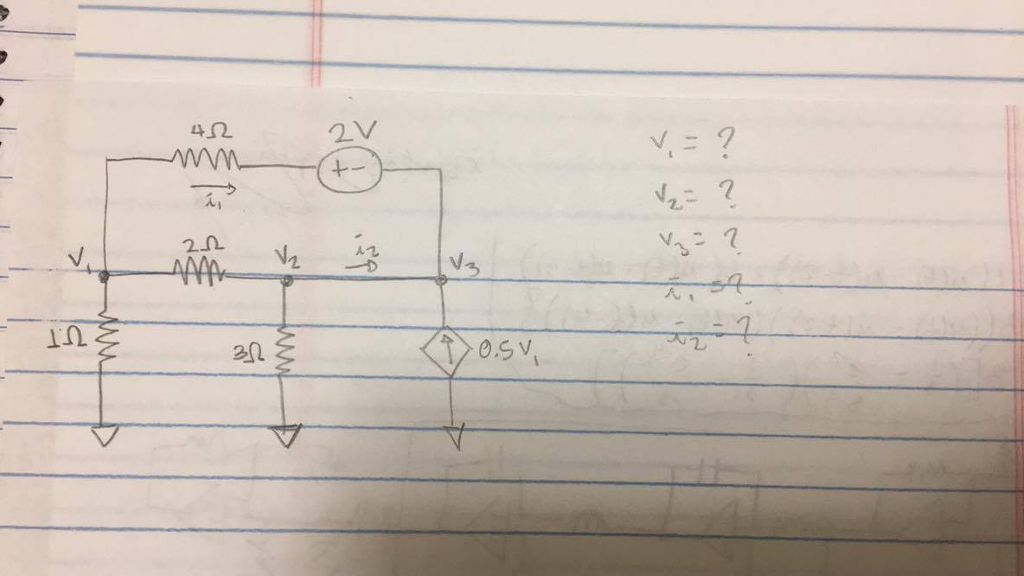 4Ω 2V
+ -
i₁
2Ω
V₁ V₂ i₂ V₃
1Ω 3Ω 0.5V₁
V₁ = ?
V₂ = ?
V₃ = ?
i₁ = ?
i₂ = ?